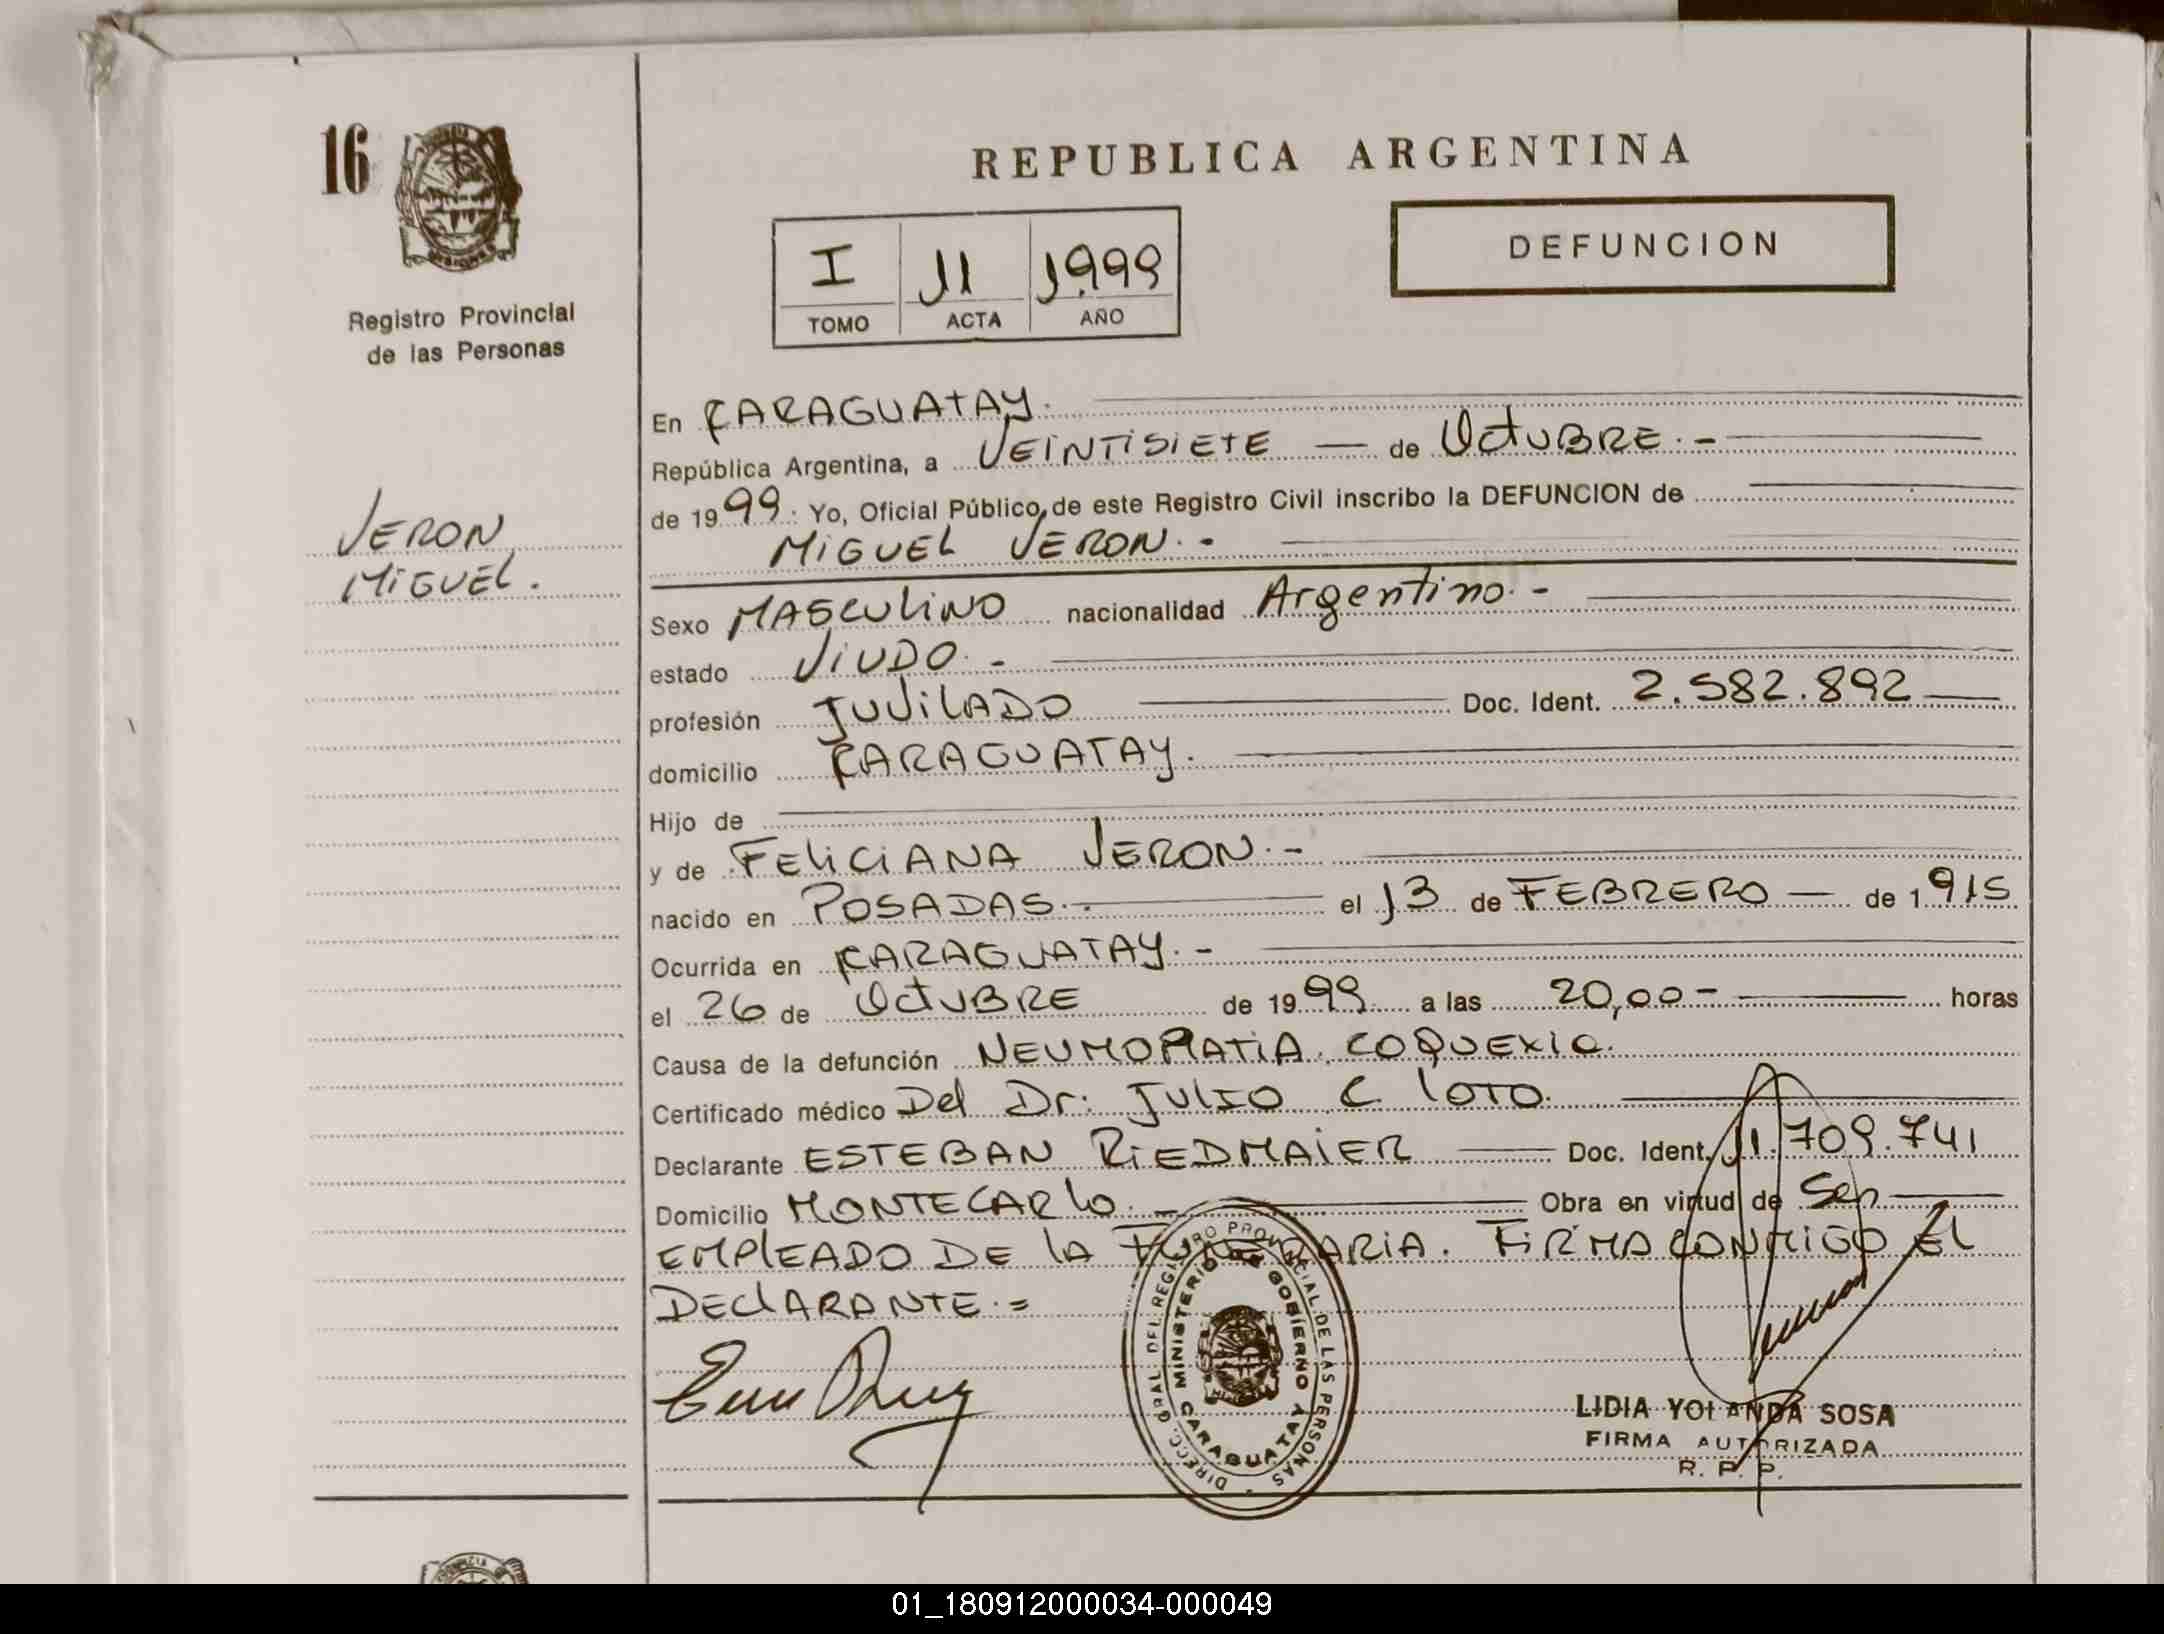 16
REPUBLICA ARGENTINA
DEFUNCION
I 11 1999
TOMO ACTA AÑO
Registro Provincial
de las Personas
VERON
MIGUEL.
En CARAGUATAY.
República Argentina, a VEINTISIETE — de OctUBRE.-
de 1999. Yo, Oficial Público, de este Registro Civil inscribo la DEFUNCION de
MIGUEL VERON.-
Sexo MASCULINO nacionalidad Argentino.-
estado VIUDO.-
profesión JUVILADO Doc. Ident. 2.582.892
domicilio CARAGUATAY.
Hijo de
y de FELICIANA VERON.-
nacido en POSADAS.- el 13 de FEBRERO — de 1915
Ocurrida en CARAGUATAY.-
el 26 de OctUBRE de 1999 a las 20,00- horas
Causa de la defunción NEUMOPATIA. COQUEXIA.
Certificado médico Del Dr. JULIO C. LOTO.
Declarante ESTEBAN RIEDMAIER Doc. Ident. 11.709.741
Domicilio MONTECARLO.- Obra en virtud de Ser
EMPLEADO DE LA FUNERARIA. FIRMA CONMIGO EL
DECLARANTE.=
DIRECC. GRAL. DEL REGISTRO PROVINCIAL DE LAS PERSONAS
MINISTERIO DE GOBIERNO
CARAGUATAY
LIDIA YOLANDA SOSA
FIRMA AUTORIZADA
R. P. P.
01_180912000034-000049